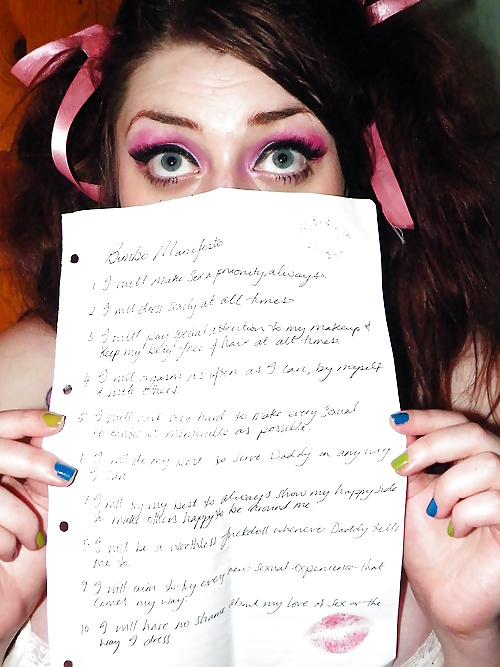 Bimbo Manifesto
1 I will make sex a priority, always.
2 I will dress sexily at all times
3 I will pay special attention to my makeup &
keep my body free of hair at all times.
4 I will orgasm as often as I can, by myself
& with others.
5 I will work very hard to make every sexual
encounter as memorable as possible.
6 I will do my best to serve Daddy in any way
I can
7 I will try my best to always show my happy side
& make others happy to be around me
8 I will be a worthless fuckdoll whenever Daddy tells
me to.
9 I will aim to try every new sexual experience that
comes my way.
10 I will have no shame about my love of sex or the
way I dress